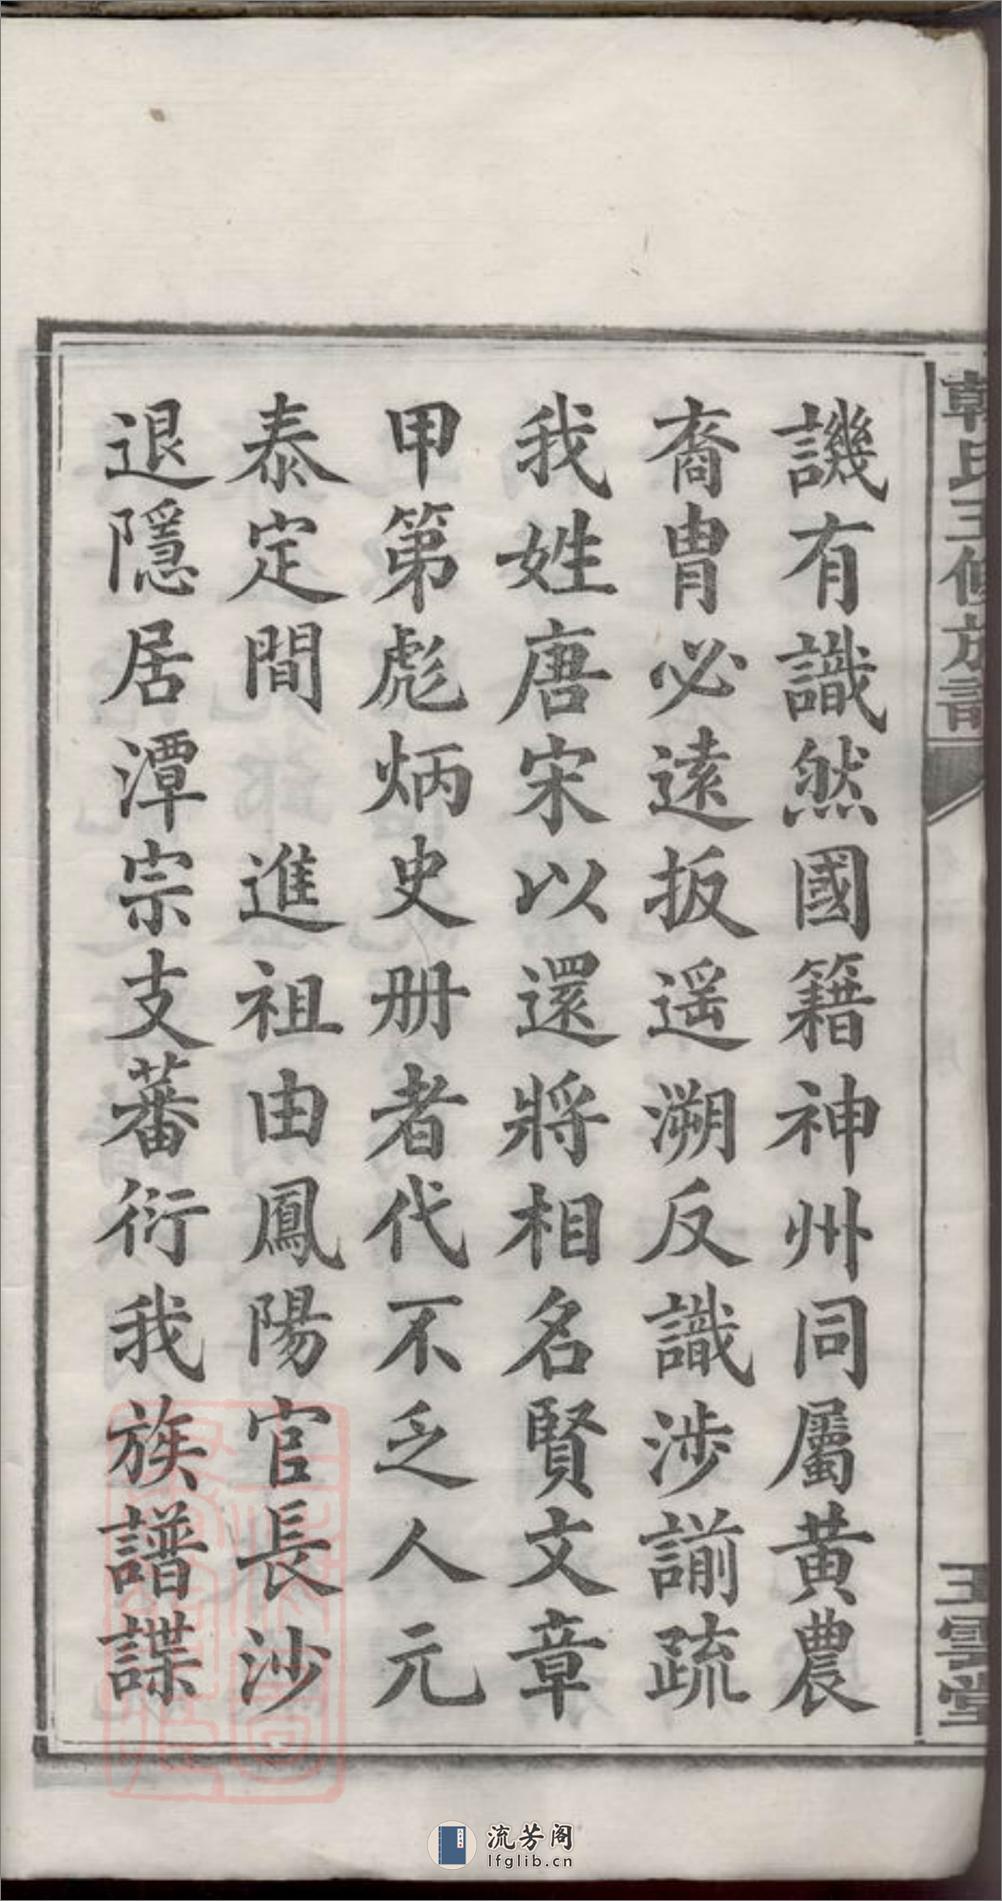 譏有識然國籍神州同屬黃農
裔胄必遠扳遥溯反識涉諭疏
我姓唐宋以還將相名賢文章
甲第彪炳史册者代不乏人元
泰定間 進祖由鳳陽官長沙
退隱居潭宗支蕃衍我族譜諜
韓氏三修族譜
玉雲堂
流芳阁
lfglib.cn